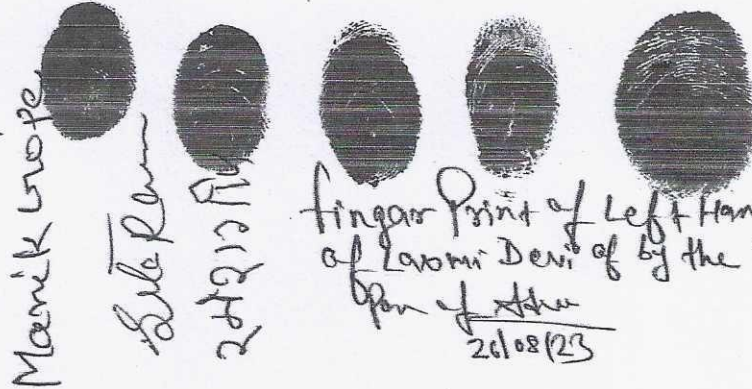 Manik Gope
Sita Ram
Fingar Print of Left Han
of Laxmi Devi of by the
Pen of
26/08/23